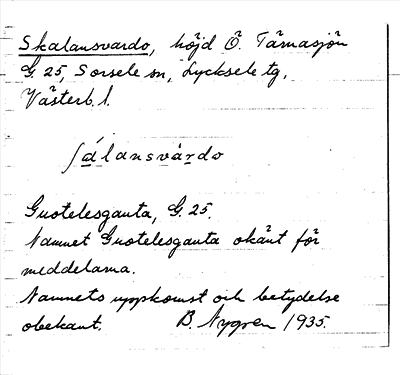 Skalansvardo, höjd Ö. Tärnasjön
G. 25, Sorsele sn, Lycksele tg,
Västerb. l.
ʃálansvárdo
Guotelesganta, G. 25.
Namnet Guotelesganta okänt för
meddelarna.
Namnets uppkomst och betydelse
obekant. B. Nygren 1935.